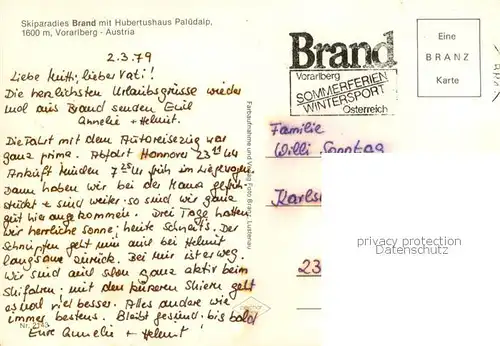 Skiparadies Brand mit Hubertushaus Palüdalp,
1600 m, Vorarlberg - Austria
2.3.79
Liebe Mutti, lieber Vati!
Die herzlichsten Urlaubsgrüsse wieder
mal aus Brand senden Euch
Annelie + Helmut.
Die Fahrt mit dem Autoreisezug war
ganz prima. Abfahrt Hannover 23
Ankunft Lindau 7 Uhr früh im Liegewagen.
Dann haben wir bei der Mama gefrüh-
stückt + sind weiter. so sind wir ganz
gut hier angekommen. Drei Tage hatten
wir herrliche Sonne; heute schneits. Der
Schnupfen geht nun auch bei Helmut
langsam zurück. Bei mir ist er weg.
Wir sind auch schon ganz aktiv beim
Skifahren; mit den kürzeren Skiern geht
es mal viel besser. Alles andere wie
immer bestens. Bleibt gesund; bis bald
Eure Annelie + Helmut!
Nr. 2143
Farbaufnahme und Verlag Foto Branz, Lustenau
Brand
Vorarlberg
SOMMERFERIEN
WINTERSPORT
Österreich
Eine
BRANZ
Karte
Familie
Willi Sonntag
Karls
23
privacy protection
Datenschutz